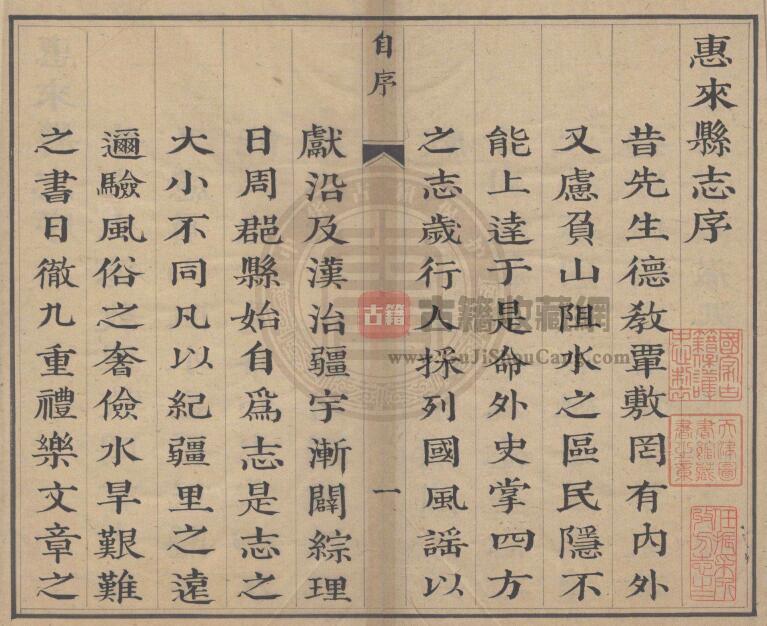 惠來縣志序
昔先生德敎覃敷罔有內外
又慮負山阻水之區民隱不
能上達于是命外史掌四方
之志歲行人採列國風謠以
自序
一
獻沿及漢治疆宇漸闢綜理
日周郡縣始自爲志是志之
大小不同凡以紀疆里之遠
邇驗風俗之奢儉水旱艱難
之書日徹九重禮樂文章之
古籍
古籍收藏網
www.GuJiShouCang.com